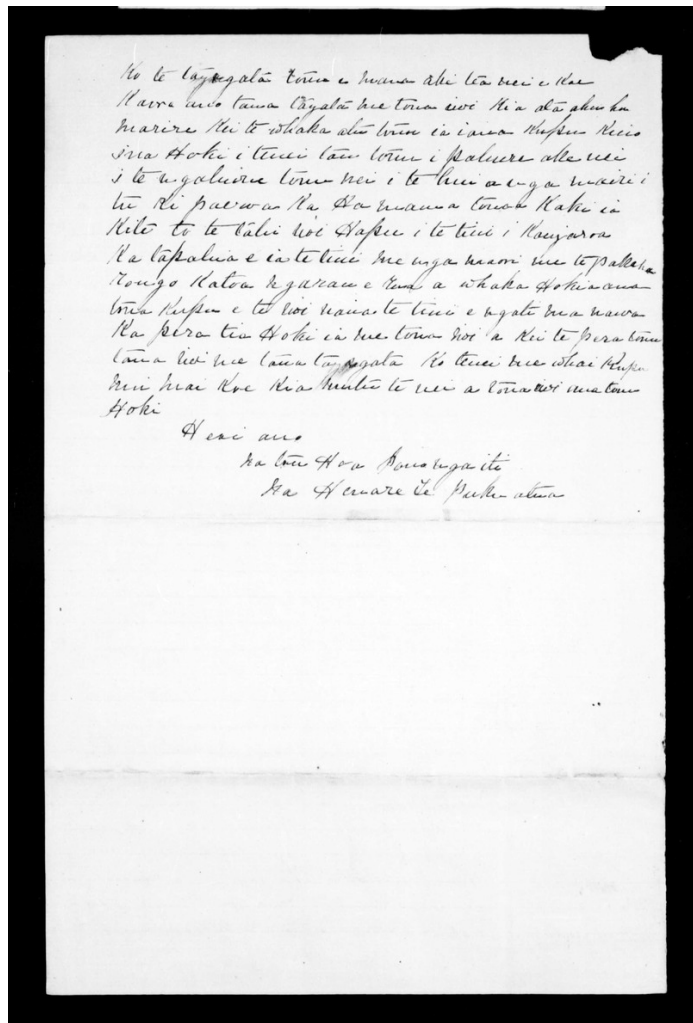 Ko te tangata tonu e mana ake tea nei e Koe
Kaore ano tana tangata me tona iwi kia ata ahu hu
marire Kei te whaka atu tonu ia i ana Kupu Kino
ina Hoki i tenei tau tonu i pahure ake nei
i te ngahuru tonu nei i te hui a nga mairi i
tu ki paeroa Ka Ha mama tona Kaki ia
Kite to te tahi iwi Hapu i te tini i Kaingaroa
Ka tapahia e ia te tini me nga maori me te pakeha
rongo Katoa ngarau e rua a whaka Hokia ana
tona Kupu e te iwi nana te tini e ngati ma nawa
Ka pera tia Hoki ia me tona iwi a Kei te pera tonu
tana iwi me tana tangata Ko tenei me whai Kupu
mai Koe Kia mutu te nei a tona iwi me tona
Hoki
Heoi ano
Na tou Hoa pononga iti
Na Hemare Te Puku atua